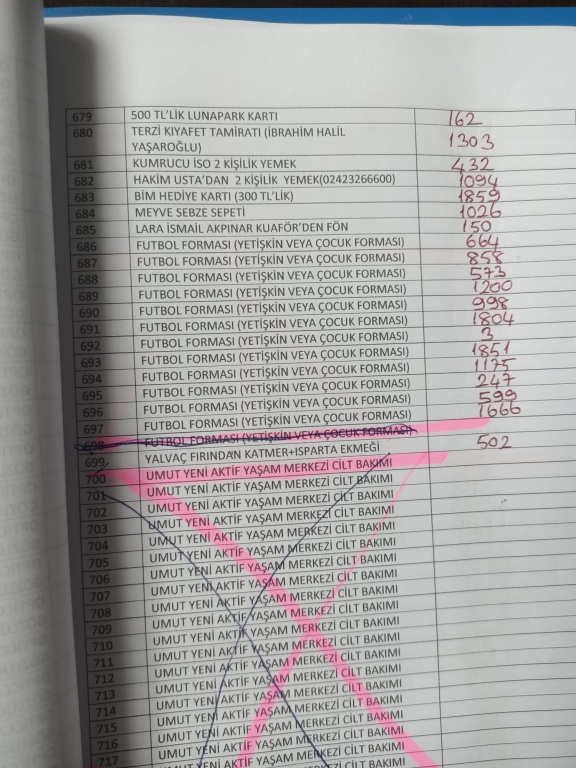 679 500 TL'LİK LUNAPARK KARTI 162
680 TERZİ KIYAFET TAMİRATI (İBRAHİM HALİL
YAŞAROĞLU) 1303
681 KUMRUCU İSO 2 KİŞİLİK YEMEK 432
682 HAKİM USTA'DAN 2 KİŞİLİK YEMEK(02423266600) 1094
683 BİM HEDİYE KARTI (300 TL'LİK) 1859
684 MEYVE SEBZE SEPETİ 1026
685 LARA İSMAİL AKPINAR KUAFÖR'DEN FÖN 150
686 FUTBOL FORMASI (YETİŞKİN VEYA ÇOCUK FORMASI) 664
687 FUTBOL FORMASI (YETİŞKİN VEYA ÇOCUK FORMASI) 858
688 FUTBOL FORMASI (YETİŞKİN VEYA ÇOCUK FORMASI) 573
689 FUTBOL FORMASI (YETİŞKİN VEYA ÇOCUK FORMASI) 1200
690 FUTBOL FORMASI (YETİŞKİN VEYA ÇOCUK FORMASI) 998
691 FUTBOL FORMASI (YETİŞKİN VEYA ÇOCUK FORMASI) 1804
692 FUTBOL FORMASI (YETİŞKİN VEYA ÇOCUK FORMASI) 3
693 FUTBOL FORMASI (YETİŞKİN VEYA ÇOCUK FORMASI) 1851
694 FUTBOL FORMASI (YETİŞKİN VEYA ÇOCUK FORMASI) 1175
695 FUTBOL FORMASI (YETİŞKİN VEYA ÇOCUK FORMASI) 247
696 FUTBOL FORMASI (YETİŞKİN VEYA ÇOCUK FORMASI) 599
697 FUTBOL FORMASI (YETİŞKİN VEYA ÇOCUK FORMASI) 1666
698 FUTBOL FORMASI (YETİŞKİN VEYA ÇOCUK FORMASI)
699 YALVAÇ FIRINDAN KATMER+ISPARTA EKMEĞİ 502
700 UMUT YENİ AKTİF YAŞAM MERKEZİ CİLT BAKIMI
701 UMUT YENİ AKTİF YAŞAM MERKEZİ CİLT BAKIMI
702 UMUT YENİ AKTİF YAŞAM MERKEZİ CİLT BAKIMI
703 UMUT YENİ AKTİF YAŞAM MERKEZİ CİLT BAKIMI
704 UMUT YENİ AKTİF YAŞAM MERKEZİ CİLT BAKIMI
705 UMUT YENİ AKTİF YAŞAM MERKEZİ CİLT BAKIMI
706 UMUT YENİ AKTİF YAŞAM MERKEZİ CİLT BAKIMI
707 UMUT YENİ AKTİF YAŞAM MERKEZİ CİLT BAKIMI
708 UMUT YENİ AKTİF YAŞAM MERKEZİ CİLT BAKIMI
709 UMUT YENİ AKTİF YAŞAM MERKEZİ CİLT BAKIMI
710 UMUT YENİ AKTİF YAŞAM MERKEZİ CİLT BAKIMI
711 UMUT YENİ AKTİF YAŞAM MERKEZİ CİLT BAKIMI
712 UMUT YENİ AKTİF YAŞAM MERKEZİ CİLT BAKIMI
713 UMUT YENİ AKTİF YAŞAM MERKEZİ CİLT BAKIMI
714 UMUT YENİ AKTİF YAŞAM MERKEZİ CİLT BAKIMI
715 UMUT YENİ AKTİF YAŞAM MERKEZİ CİLT BAKIMI
716 UMUT YENİ AKTİF YAŞAM MERKEZİ CİLT BAKIMI
717 UMUT YENİ AKTİF YAŞAM MERKEZİ CİLT BAKIMI